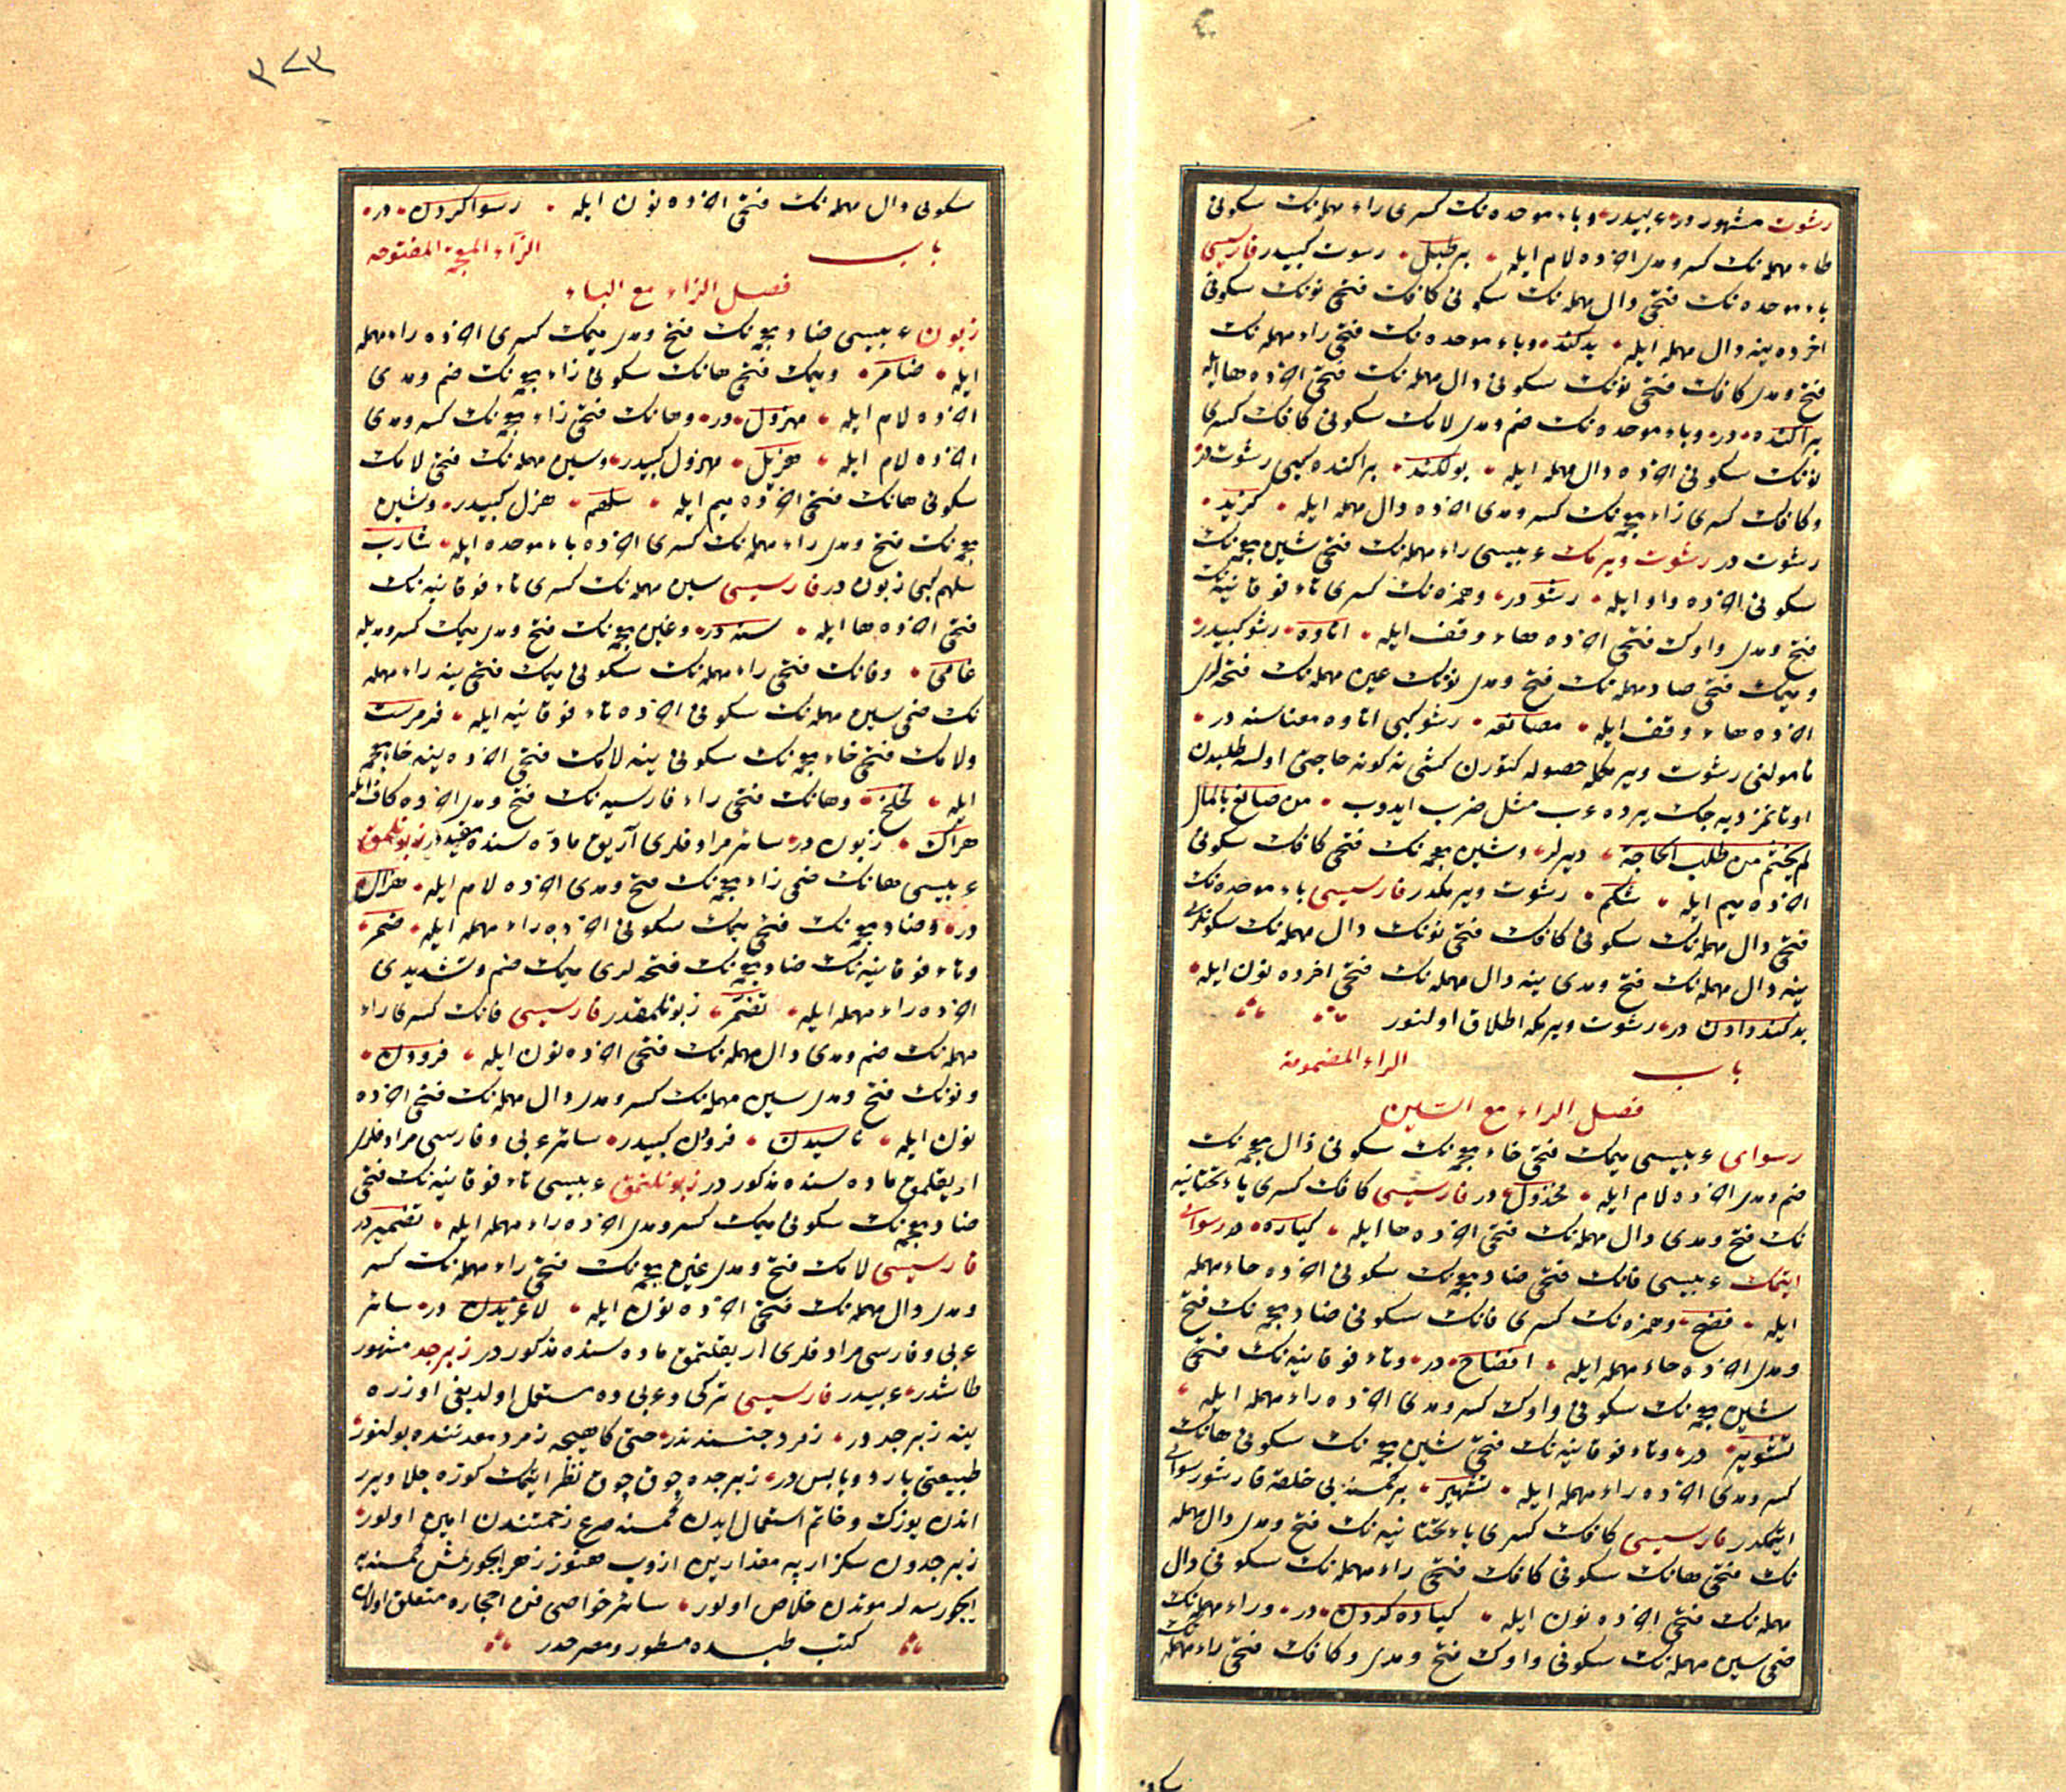 رشوت مشهوردر عربیدر وباء موحده نك كسری راء مهمله نك سكونی
طاء مهمله نك كسر ومدی اخرده لام ایله برطیل رشوت كبیدر فارسیسی
باء موحده نك فتحی دال مهمله نك سكونی كافك فتحی نونك سكونی
اخرده ینه دال مهمله ایله بدكند وباء موحده نك فتحی راء مهمله نك
فتح ومدی كافك فتحی نونك سكونی دال مهمله نك فتحی اخرده ها ایله
براكنده در وباء موحده نك ضم ومدی لامك سكونی كافك كسری
نونك سكونی اخرده دال مهمله ایله بولكند براكنده كبی رشوتدر
وكافك كسری زاء معجمه نك كسر ومدی اخرده دال مهمله ایله كزید
رشوت در رشوت ویرمك عربیسی راء مهمله نك فتحی شین معجمه نك
سكونی اخرده واو ایله رشو در وهمزه نك كسری تاء فوقانیه نك
فتح ومدی واوك فتحی اخرده هاء وقف ایله اتاوه رشو كبیدر
ومیمك فتحی صاد مهمله نك فتح ومدی نونك عین مهمله نك فتحه لری
اخرده هاء وقف ایله مصانعه رشو كبی اتاوه معناسنه در
مأمولنی رشوت ویرمكله حصوله كتورن كشی نه كونه حاجتی اولسه طلبدن
اوتانمز دیه جك یرده عرب مثل ضرب ایدوب من صانع بالمال
لم یحتشم من طلب الحاجة دیرلر وشین معجمه نك فتحی كافك سكونی
اخرده میم ایله شكم رشوت ویرمكدر فارسیسی باء موحده نك
فتحی دال مهمله نك سكونی كافك فتحی نونك دال مهمله نك سكونلری
ینه دال مهمله نك فتح ومدی ینه دال مهمله نك فتحی اخرده نون ایله
بدكند دادن در رشوت ویرمكه اطلاق اولنور
باب الراء المضمومة
فصل الراء مع السین
رسوای عربیسی میمك فتحی خاء معجمه نك سكونی ذال معجمه نك
ضم ومدی اخرده لام ایله مخذول در فارسیسی كافك كسری یاء تحتانیه
نك فتح ومدی دال مهمله نك فتحی اخرده ها ایله كیاده در رسوای
ایتمك عربیسی فانك فتحی ضاد معجمه نك سكونی اخرده حاء مهمله
ایله فضح وهمزه نك كسری فانك سكونی ضاد معجمه نك فتح
ومدی اخرده حاء مهمله ایله افضاح در وتاء فوقانیه نك فتحی
شین معجمه نك سكونی واوك كسر ومدی اخرده راء مهمله ایله
تشویر در وتاء فوقانیه نك فتحی شین معجمه نك سكونی هانك
كسر ومدی اخرده راء مهمله ایله تشهیر بر كمسنه یی خلقه قارشو رسوای
ایتمكدر فارسیسی كافك كسری یاء تحتانیه نك فتح ومدی دال مهمله
نك فتحی هانك سكونی كافك فتحی راء مهمله نك سكونی دال
مهمله نك فتحی اخرده نون ایله كیاده كردن در وراء مهمله نك
ضمی سین مهمله نك سكونی واوك فتح ومدی وكافك فتحی راء مهمله نك
سكونی
٣٢٣
سكونی دال مهمله نك فتحی اخرده نون ایله رسوا كردن در
باب الزاء المعجمه المفتوحه
فصل الزاء مع الباء
زبون عربیسی ضاد معجمه نك فتح ومدی میمك كسری اخرده راء مهمله
ایله ضامر ومیمك فتحی هانك سكونی زاء معجمه نك ضم ومدی
اخرده لام ایله مهزول در وهانك فتحی زاء معجمه نك كسر ومدی
اخرده لام ایله هزیل مهزول كبیدر وسین مهمله نك فتحی لامك
سكونی هانك فتحی اخرده میم ایله سلهم هزل كبیدر وشین
معجمه نك فتح ومدی راء مهمله نك كسری اخرده باء موحده ایله شارب
سلهم كبی زبون در فارسیسی سین مهمله نك كسری تاء فوقانیه نك
فتحی اخرده ها ایله سته در وغین معجمه نك فتح ومدی میمك كسر ومدیله
غامی وفانك فتحی راء مهمله نك سكونی میمك فتحی ینه راء مهمله
نك ضمی سین مهمله نك سكونی اخرده تاء فوقانیه ایله فرمرست
ولامك فتحی خاء معجمه نك سكونی ینه لامك فتحی اخرده ینه خاء معجمه
ایله لخلخ وهانك فتحی راء فارسیه نك فتح ومدی اخرده كاف ایله
هراك زبون در سائر مرادفلری آریق ماده سنده مقیددر زبونلمق
عربیسی هانك ضمی زاء معجمه نك فتح ومدی اخرده لام ایله هزال
در وضاد معجمه نك فتحی میمك سكونی اخرده راء مهمله ایله ضمر
وتاء فوقانیه نك ضاد معجمه نك فتحه لری میمك ضم وتشدیدی
اخرده راء مهمله ایله تضمر زبونلمقدر فارسیسی فانك كسری راء
مهمله نك ضم ومدی دال مهمله نك فتحی اخرده نون ایله فرودن
ونونك فتح ومدی سین مهمله نك كسر ومدی دال مهمله نك فتحی اخرده
نون ایله ناسیدن فرودن كبیدر سائر عربی وفارسی مرادفلری
اریقلمق ماده سنده مذكور در زبونلتمق عربیسی تاء فوقانیه نك فتحی
ضاد معجمه نك سكونی میمك كسر ومدی اخرده راء مهمله ایله تضمیر در
فارسیسی لامك فتح ومدی غین معجمه نك فتحی راء مهمله نك كسر
ومدی دال مهمله نك فتحی اخرده نون ایله لاغریدن در سائر
عربی وفارسی مرادفلری اریقلتمق ماده سنده مذكور در زبرجد مشهور
طاشدر عربیدر فارسیسی تركی وعربی ده مستعمل اولدیغی اوزره
ینه زبرجددر زمرد جنسندندر حتی كاهیجه زمرد معدننده بولنور
طبیعتی بارد ویابس در زبرجده چوق چوق نظر ایتمك كوزه جلا ویرر
اندن یوزك وخاتم استعمال ایدن كمسنه صرع زحمتندن امین اولور
زبرجددن سكز ارپه مقدارین ازوب هنوز زهر ایچورلمش كمسنه یه
ایچورسه لر موتدن خلاص اولور سائر خواصی فن احجاره متعلق اولان
كتب طبیه ده مسطور ومصرحدر